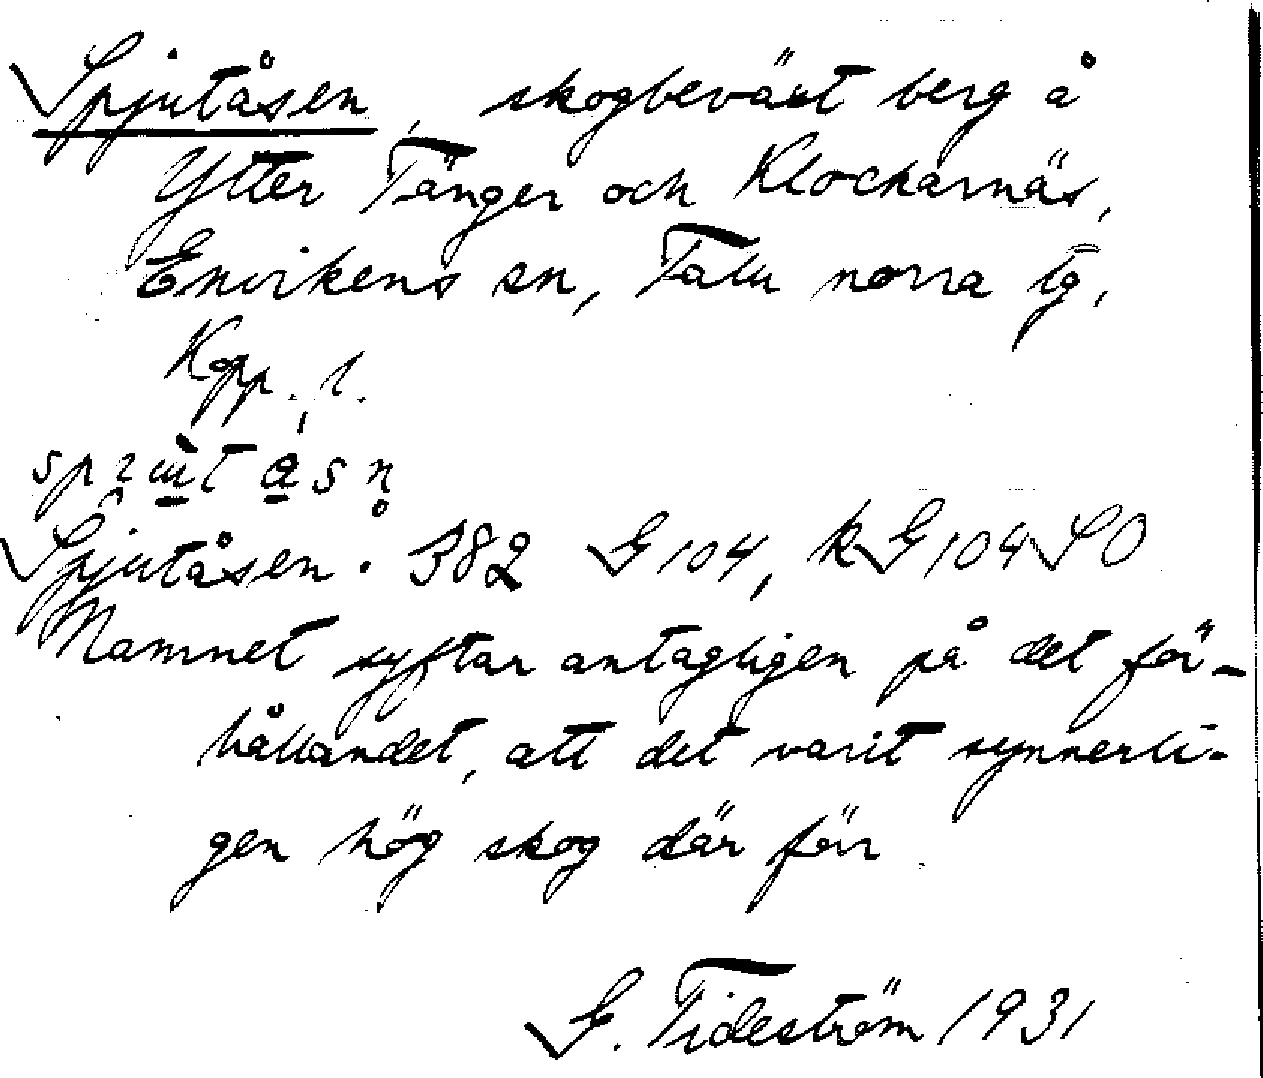 Spjutåsen, skogbeväxt berg å
Ytter Tänger och Klockarnäs,
Envikens sn, Falu norra tg,
Kpp. l.
Spjutåsen. 382 G 104, k G 104 SO
Namnet syftar antagligen på det för-
hållandet, att det varit synnerli-
gen hög skog där förr.
G. Tideström 1931